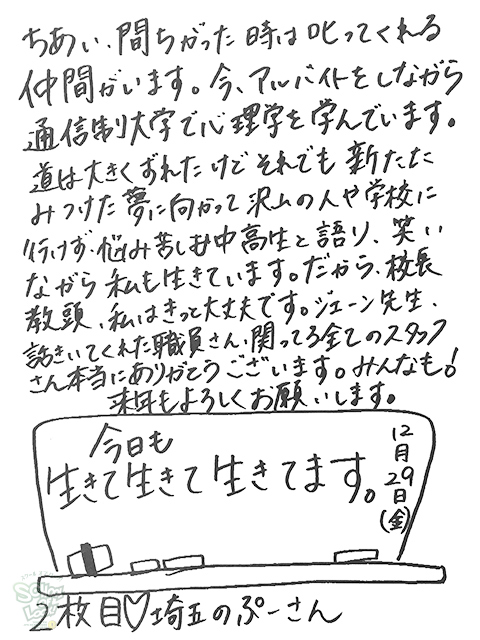 ちあい、間ちがった時は叱ってくれる
仲間がいます。今、アルバイトをしながら
通信制大学で心理学を学んでいます。
道は大きくずれたけどそれでも新たに
みつけた夢に向かって沢山の人や学校に
行けず悩み苦しむ中高生と語り、笑い
ながら私も生きています。だから、校長
教頭、私はきっと大丈夫です。ジェーン先生、
話きいてくれた職員さん、関ってる全てのスタッフ
さん本当にありがとうございます。みんなも!
来年もよろしくお願いします。
今日も
生きて生きて生きてます。
12月29日(金)
2枚目♡埼玉のぷーさん